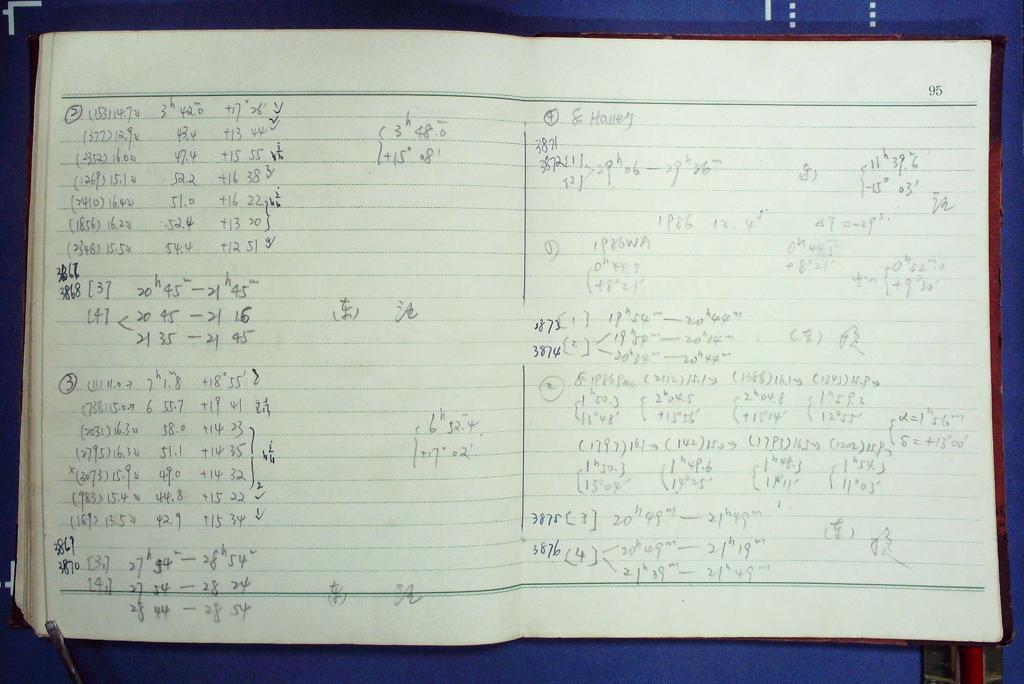 ② (153)14.7 3ʰ 42.ᵐ0 +17°26′
(377)12.9 43.4 +13 44
(2352)16.0 47.4 +15 55
(1269)15.1 52.2 +16 38
(2410)16.4 51.0 +16 22
(1856)16.2 52.4 +13 20
(2346)15.5 54.4 +12 51
3ʰ 48.ᵐ0
+15° 08′
3868 [3] 20ʰ45ᵐ — 21ʰ45ᵐ
[4] 20 45 — 21 15
21 35 — 21 45
(东)
③ (11)11.0 7ʰ1.8 +18°55′
(738)15.0 6 55.7 +19 41
(2031)16.3 58.0 +14 23
(2795)16.3 51.1 +14 35
×(2073)15.9 49.0 +14 32
(983)15.4 44.8 +15 22
(169)13.5 42.9 +15 34
6ʰ 52.ᵐ4
+17° 02′
3869
3870 [3] 27ʰ54ᵐ — 28ʰ54ᵐ
[4] 27 54 — 28 24
28 44 — 28 54
东
95
④ Halley
3871 [1]
3872 [2] 29ʰ06 — 29ʰ36ᵐ
11ʰ 39.ᵐ6
-15° 03′
1986 12. 4 ΔT = -29ˢ
① 1986WA
0ʰ44.5
+8°21′
0ʰ44.5
+8°21′
0ʰ52.ᵐ0
+9°30′
3873 [1] 19ʰ54ᵐ — 20ʰ44ᵐ
3874 [2] 19ʰ54ᵐ — 20ʰ14ᵐ
20ʰ34ᵐ — 20ʰ44ᵐ
(东)
② (2112)15.1 (1686)16.1 (1343)15.9
1ʰ50.3 2ʰ04.5 2ʰ04.8 1ʰ59.2
13°48′ +13°56′ +13°14′ 12°55′
α=1ʰ56ᵐ
δ=+13°00′
(1797)16.1 (142)15.0 (1783)16.5 (1202)15.9
1ʰ50.3 1ʰ49.6 1ʰ48.3 1ʰ54.3
13°04′ 14°25′ 14°11′ 11°03′
3875 [3] 20ʰ49ᵐ — 21ʰ49ᵐ
3876 [4] 20ʰ49ᵐ — 21ʰ19ᵐ
21ʰ39ᵐ — 21ʰ49ᵐ
(东)